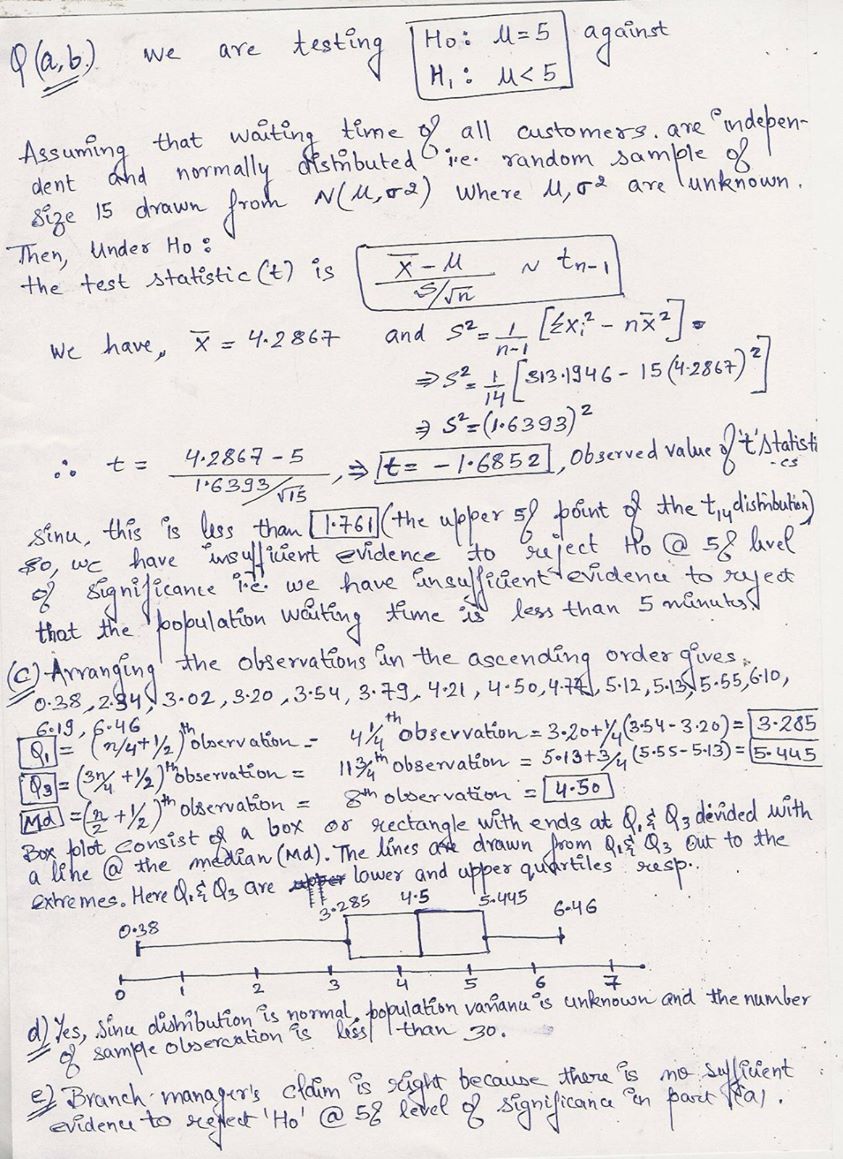 Q(a,b.) we are testing H0: μ=5 against
H1: μ<5
Assuming that waiting time of all customers. are indepen-
dent and normally distributed i.e. random sample of
size 15 drawn from N(μ,σ2) where μ,σ2 are unknown.
Then, Under Ho:
the test statistic (t) is x̄ - μ / S/√n ~ tn-1
we have, x̄ = 4.2867 and S² = 1/n-1 [Σxi² - nx̄²]
⇒ S² = 1/14 [313.1946 - 15(4.2867)²]
⇒ S² = (1.6393)²
∴ t = 4.2867 - 5 / 1.6393/√15, ⇒ t = -1.6852, Observed value of 't' statisti
-cs
Sinu, this is less than 1.761 (the upper 5% point of the t14 distribution)
so, we have insufficient evidence to reject Ho @ 5% level
of significance i.e. we have insufficient evidence to reject
that the population waiting time is less than 5 minutes.
(c) Arranging the observations in the ascending order gives,
0.38, 2.34, 3.02, 3.20, 3.54, 3.79, 4.21, 4.50, 4.77, 5.12, 5.13, 5.55, 6.10,
6.19, 6.46
Q1 = (n/4+1/2)th observation = 4 1/4th observation = 3.20+1/4(3.54-3.20) = 3.285
Q3 = (3n/4 +1/2)th observation = 11 3/4th observation = 5.13+3/4(5.55-5.13) = 5.445
Md = (n/2 +1/2)th observation = 8th observation = 4.50
Box plot consist of a box or rectangle with ends at Q1 & Q3 devided with
a line @ the median (Md). The lines are drawn from Q1 & Q3 out to the
extremes. Here Q1 & Q3 are lower and upper quartiles resp..
0.38 3.285 4.5 5.445 6.46
0 1 2 3 4 5 6 7
d) Yes, Sinu distribution is normal, population varianu is unknown and the number
of sample obsercation is less than 30.
e) Branch manager's claim is right because there is no sufficient
evidenu to reject 'Ho' @ 5% level of significance in part (a).